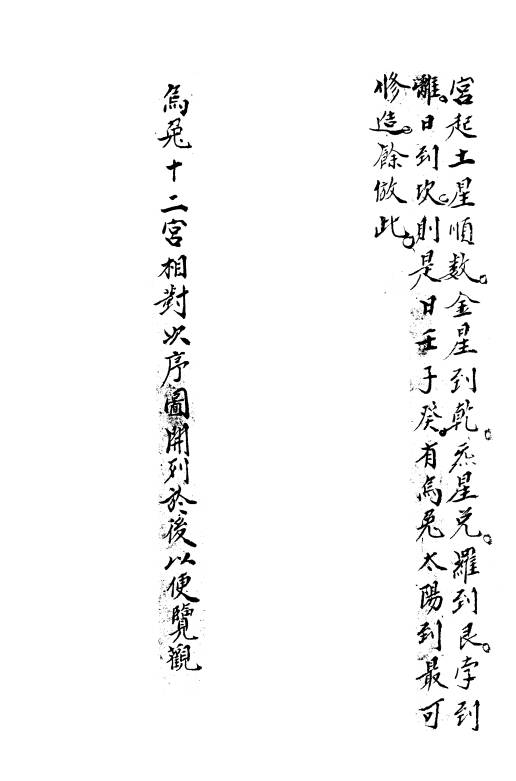 宮起土星順数。金星到乾。炁星兑。羅到艮。孛到
離。日到坎。則是日壬子癸。有烏兔太陽到最可
修造。餘倣此。
烏兔十二宮相對次序圖開列於後以便覽觀